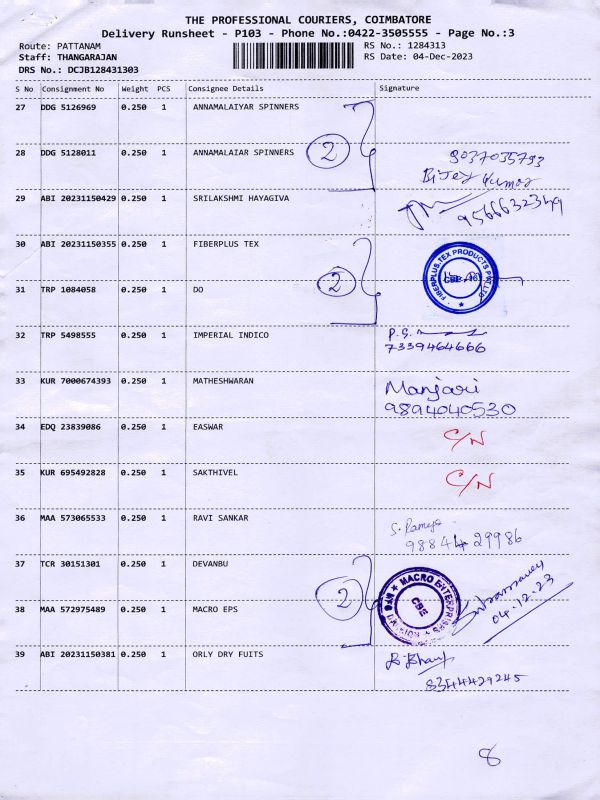 THE PROFESSIONAL COURIERS, COIMBATORE
Delivery Runsheet - P103 - Phone No.:0422-3505555 - Page No.:3
Route: PATTANAM RS No.: 1284313
Staff: THANGARAJAN RS Date: 04-Dec-2023
DRS No.: DCJB128431303
S No Consignment No Weight PCS Consignee Details Signature
27 DDG 5126969 0.250 1 ANNAMALAIYAR SPINNERS
2
28 DDG 5128011 0.250 1 ANNAMALAIAR SPINNERS 9037035793
Bijey Kumar
29 ABI 20231150429 0.250 1 SRILAKSHMI HAYAGIVA
30 ABI 20231150355 0.250 1 FIBERPLUS TEX
2 FIBERPLUS TEX PRODUCTS PVT LTD
31 TRP 1084058 0.250 1 DO
32 TRP 5498555 0.250 1 IMPERIAL INDICO
7339464666
33 KUR 7000674393 0.250 1 MATHESHWARAN Manjari
9894040530
34 EDQ 23839086 0.250 1 EASWAR C/N
35 KUR 695492828 0.250 1 SAKTHIVEL C/N
36 MAA 573065533 0.250 1 RAVI SANKAR S. Ramya
98844 29986
37 TCR 30151301 0.250 1 DEVANBU
2 MACRO ENTERPRISES
CBE
04.12.23
38 MAA 572975489 0.250 1 MACRO EPS
39 ABI 20231150381 0.250 1 ORLY DRY FUITS
8344429245
8